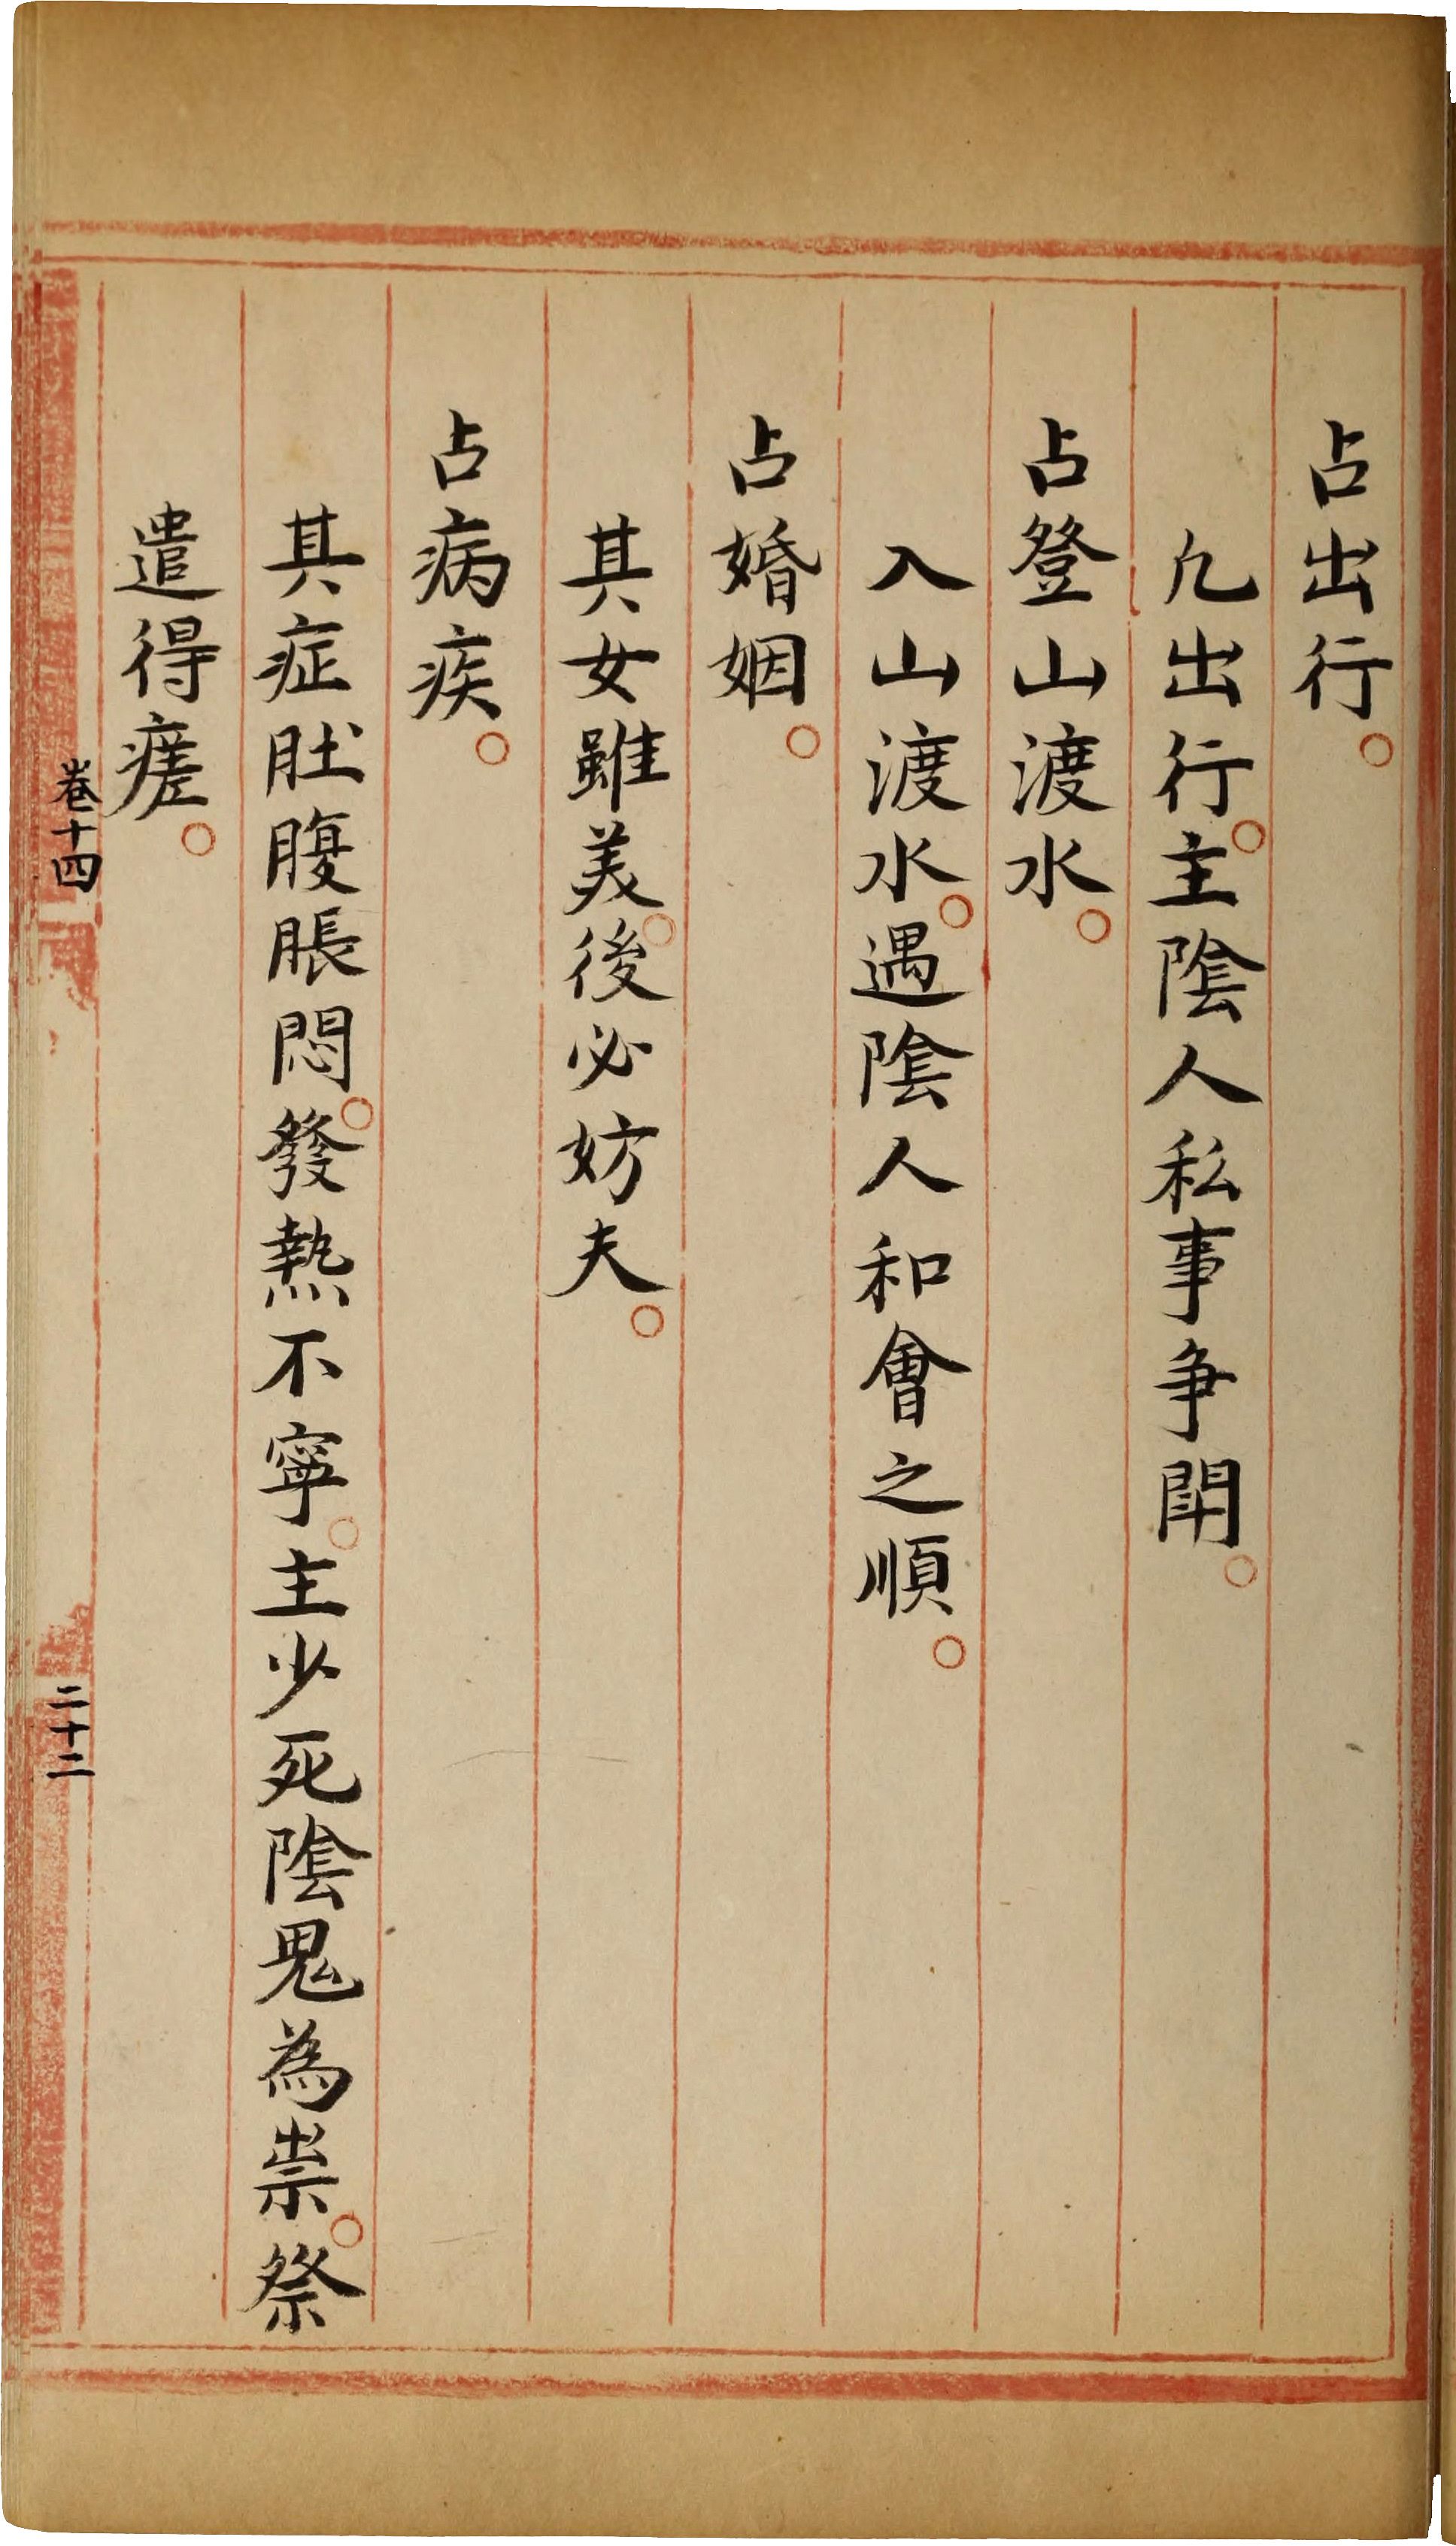 占出行。
凢出行。主隂人私事争閗。
占登山渡水。
入山渡水。遇隂人和會之順。
占婚姻。
其女雖美。後必妨夫。
占病疾。
其症肚腹脹悶。發熱不寧。主少死隂鬼為祟。祭
遣得瘥。
卷十四
二十二